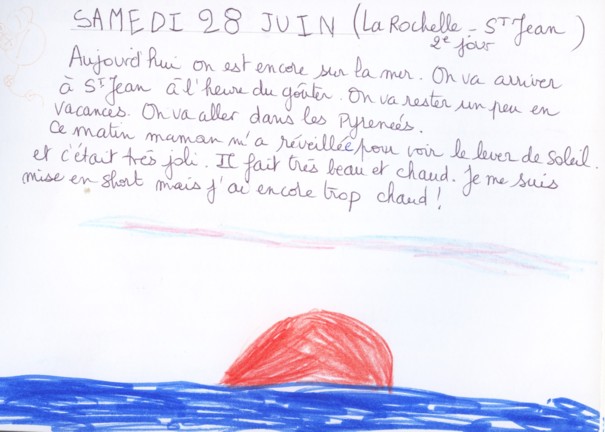 SAMEDI 28 JUIN (La Rochelle - St Jean)
2e jour
Aujourd'hui on est encore sur la mer. On va arriver
à St Jean à l'heure du goûter. On va rester un peu en
vacances. On va aller dans les Pyreneés.
Ce matin maman m'a réveillée pour voir le lever de soleil.
et c'était très joli. Il fait très beau et chaud. Je me suis
mise en short mais j'ai encore trop chaud !